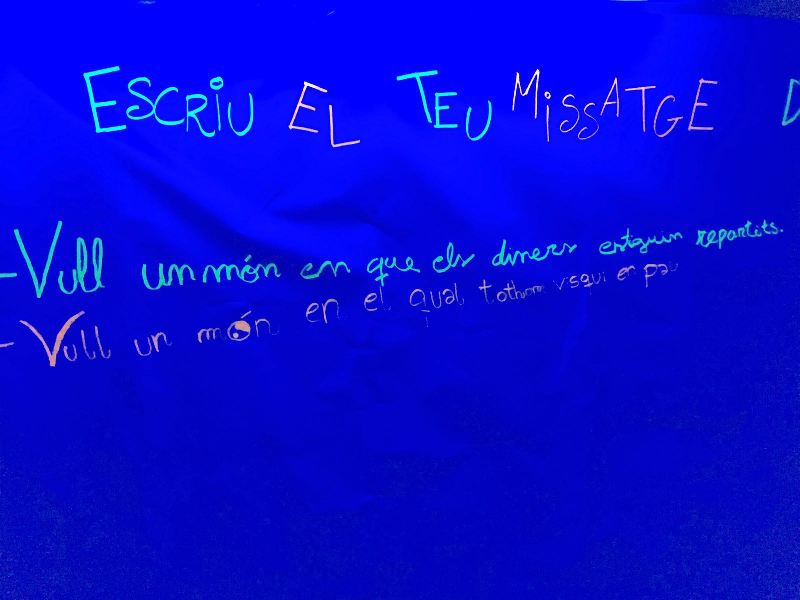 ESCRIU EL TEU MISSATGE D
-Vull un món en que els diners estiguin repartits.
-Vull un món en el qual tothom visqui en pau